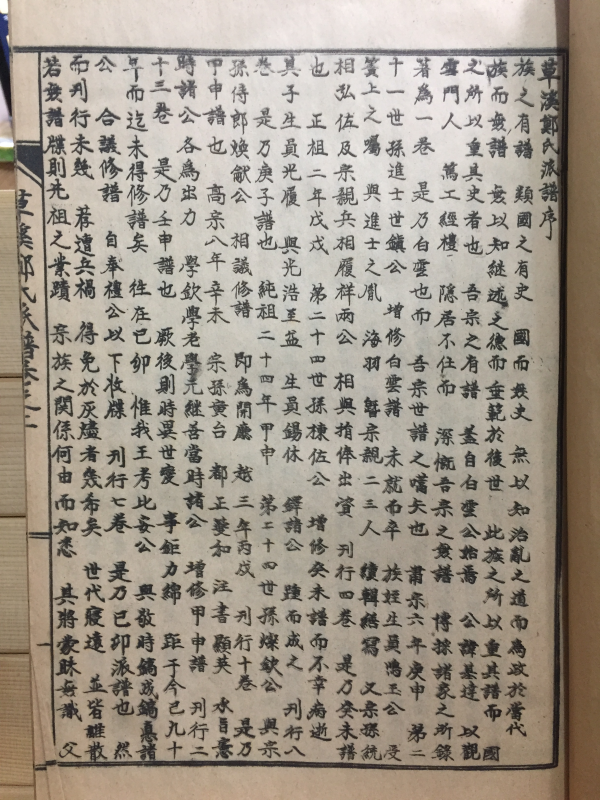 草溪鄭氏派譜序
族之有譜 類國之有史 國而無史 無以知治亂之道而爲政於當代
族而無譜 無以知継述之德而垂範於後世 此族之所以重其譜而 國
之所以重其史者也 吾宗之有譜 盖自白雲公始焉 公諱基達 以觀
雪門人 篤工經禮 隱居不仕而 深慨吾宗之無譜 博採諸家之所錄
著為一卷 是乃白雲也而 吾宗世譜之嚆矢也 肅宗六年庚申 第二
十一世孫進士世鎮公 增修白雲譜 未就而卒 族姪生員鴻玉公 受
簀上之囑 與進士之胤 海羽 曁宗親二三人 續輯繕寫 又宗孫統
相弘佐及宗親兵相履祥兩公 相與捐俸出資 刊行四卷 是乃癸未譜
也 正祖二年戊戌 第二十四世孫棟佐公 增修癸未譜而不幸病逝
其子生員光履 與光浩至益 生員錫休 鐸諸公 踵而成之 刊行八
卷 是乃庚子譜也 純祖二十四年甲申 第二十四世孫燦歆公 與宗
孫侍郎煥猷公 相議修譜 即為開廳 越三年丙戌 刊行十卷 是乃
甲申譜也 高宗八年辛未 宗孫黃台 都正夔和 注書顯英 水旨憲
時諸公各為出力 學欽學老學元継善當時諸公 增修甲申譜 刊行二
十三卷 是乃壬申譜也 厥後則時異世變 事鉅力綿 距于今已九十
年而迄未得修譜矣 往在己卯 惟我王考比安公 與敬時鎬成鎬憙諸
公 合議修譜 自奉禮公以下收牒 刊行七卷 是乃己卯派譜也 然
而刊行未幾 荐遭兵禍 得免於灰燼者幾希矣 世代寢遠 並皆離散
若無譜牒則先祖之業蹟 宗族之関係何由而知悉 其將蒙昧無識 父
草溪鄭氏派譜卷之一